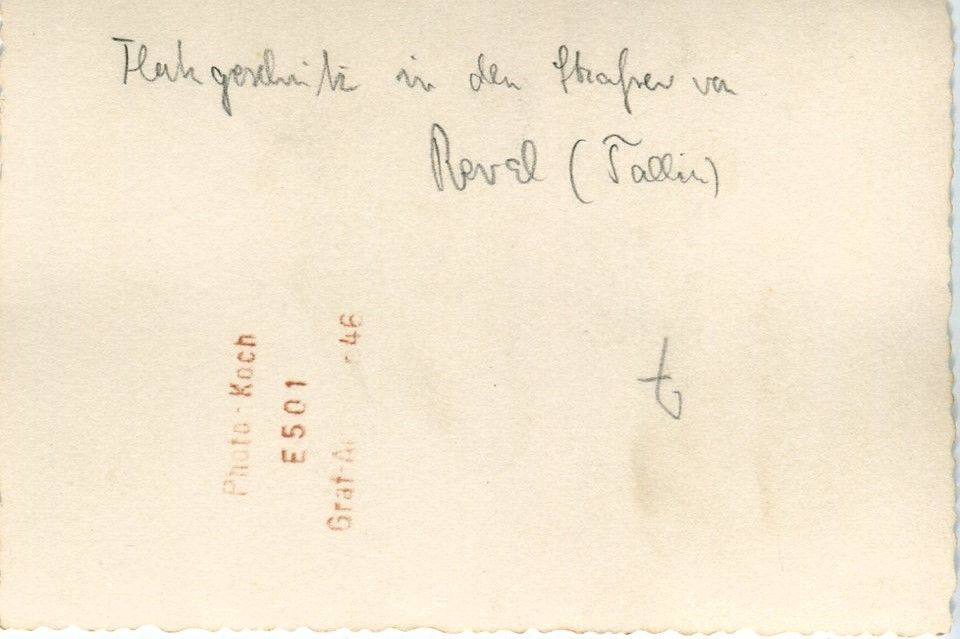 Flakgeschütz in den Straßen von
Reval (Tallin)
Photo-Koch
E501
Graf-A
46